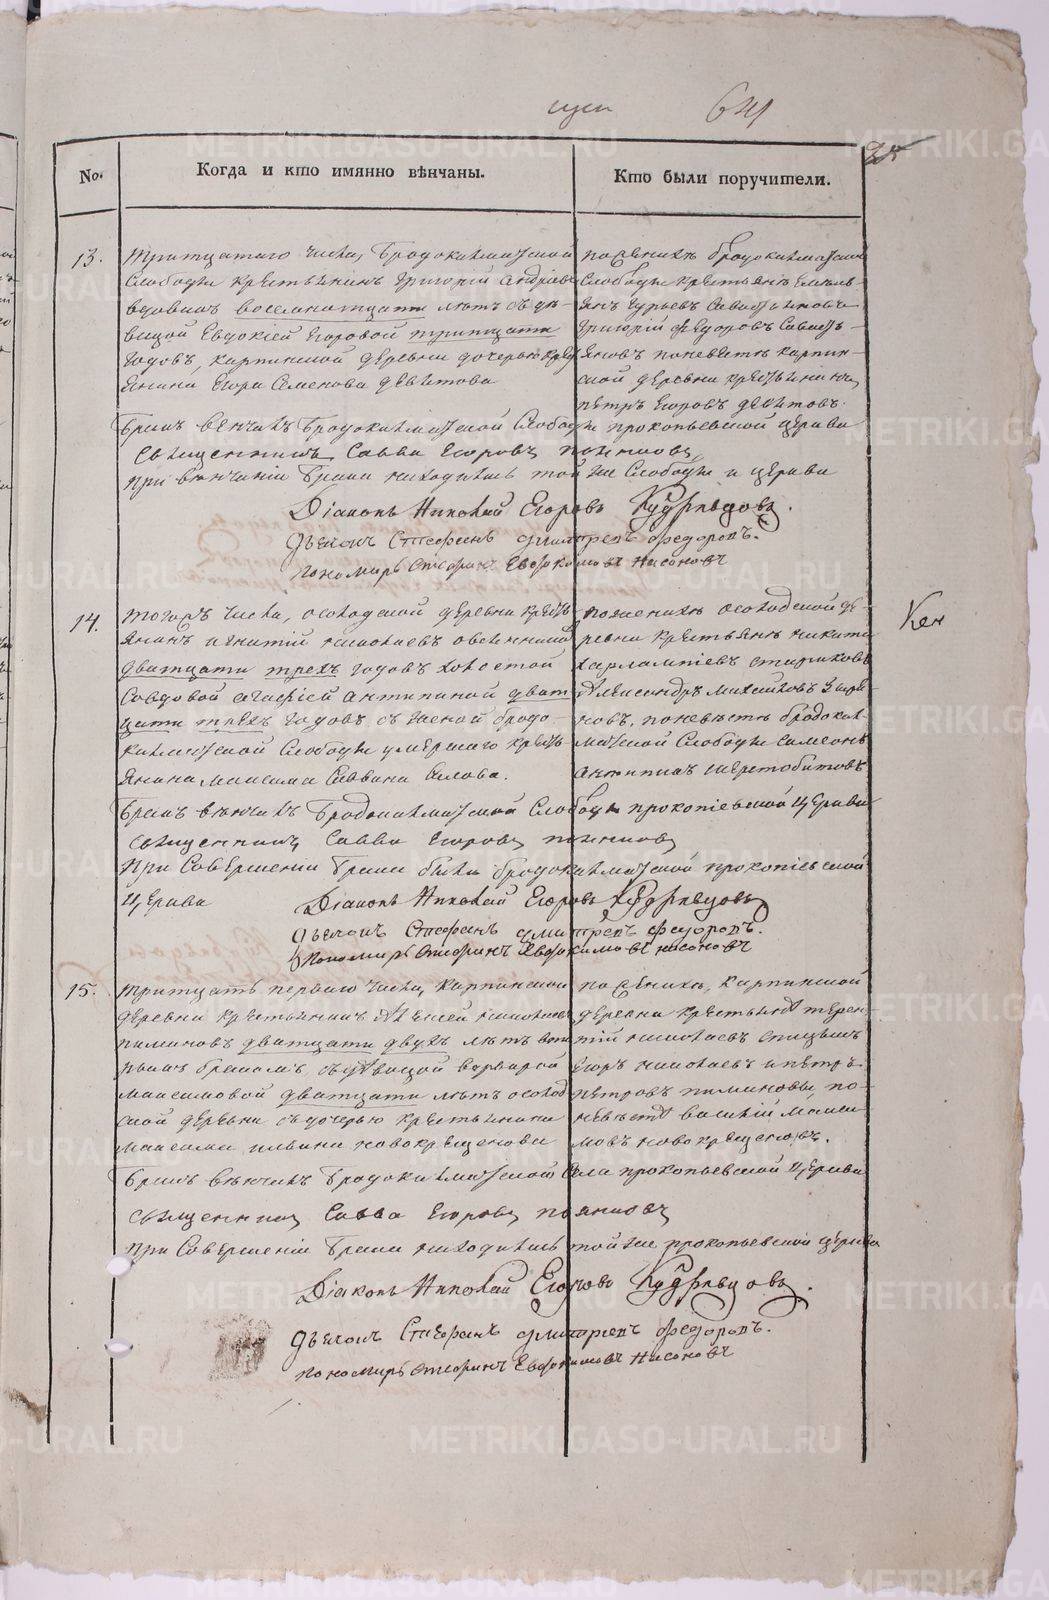 641
25
No.
Когда и кто имянно вѣнчаны.
Кто были поручители.
13.
тритцатаго числа, Бродокалмацкой
Слободы крестьянинъ Григорий Андреевъ
вдовецъ восемнатцати лѣтъ съ дѣ-
вицой Евдокіей Егоровой тритцати
годовъ, карпинской деревни дочерью крест
янина Егора Семенова Девятова
по женихѣ бродокалмацкой
Слободы крестьянѣ
Григорій Федоровъ
по невѣстѣ карпин-
ской деревни крестьянинъ
петръ Егоровъ девятовъ.
Бракъ вѣнчалъ Бродокалмацкой Слободы прокопьевской церкви
Священникъ Савва Егоровъ
при вѣнчаніи Брака находились той же Слободы и церкви
Діаконъ Николай Егоровъ Кудрявцовъ.
Дьячокъ Стефанъ Дмитревъ Федоровъ.
пономарь Стефанъ Евфокимовъ Насоновъ
14.
тогожъ числа, осолодской деревни кресть
янинъ игнатій николаевъ овсянниковъ
дватцати трехъ годовъ холостой
Совдовой агафіей антипиной дват
цати трехъ годовъ съ женой бродо-
калмацкой Слободы умершаго кресть
янина максима Саввина Белова.
по женихѣ осолодской де-
ревни крестьяне никита
харлампіевъ стариковъ
Александръ
новъ, по невѣстѣ бродокал-
мацкой Слободы Симеонъ
антипинъ шерстобитовъ
Бракъ вѣнчалъ Бродокалмацкой Слободы прокопіевской Церкви
священникъ Савва Егоровъ
При Совершеніи Брака были бродокалмацкой прокопіевской
Церкви
Діаконъ Николай Егоровъ Кудрявцовъ
Дьячокъ Стефанъ Дмитревъ Федоровъ.
Пономарь Стефанъ Евфокимовъ насоновъ
15.
тритцать перваго числа, карпинской
деревни крестьянинъ Алексей николаевъ
пиминовъ дватцати двухъ лѣтъ
бракомъ, съ дѣвицой варварой
максимовой дватцати лѣтъ осолод
ской деревни съ дочерью крестьянина
максима ильина новокрещенова
по женихѣ, карпинской
деревни крестьяне терен
тій николаевъ спицынъ
Егоръ николаевъ и петръ
петровъ пиминовы, по
невѣстѣ василій макси
мовъ новокрещеновъ.
бракъ вѣнчалъ Бродокалмацкой Села прокопьевской Церкви
Священникъ Савва Егоровъ
при Совершеніи Брака находились той же прокопьевской церкви
Діаконъ Николай Егоровъ Кудрявцовъ.
Дьячокъ Стефанъ Дмитревъ Федоровъ.
пономарь Стефанъ Евфокимовъ Насоновъ